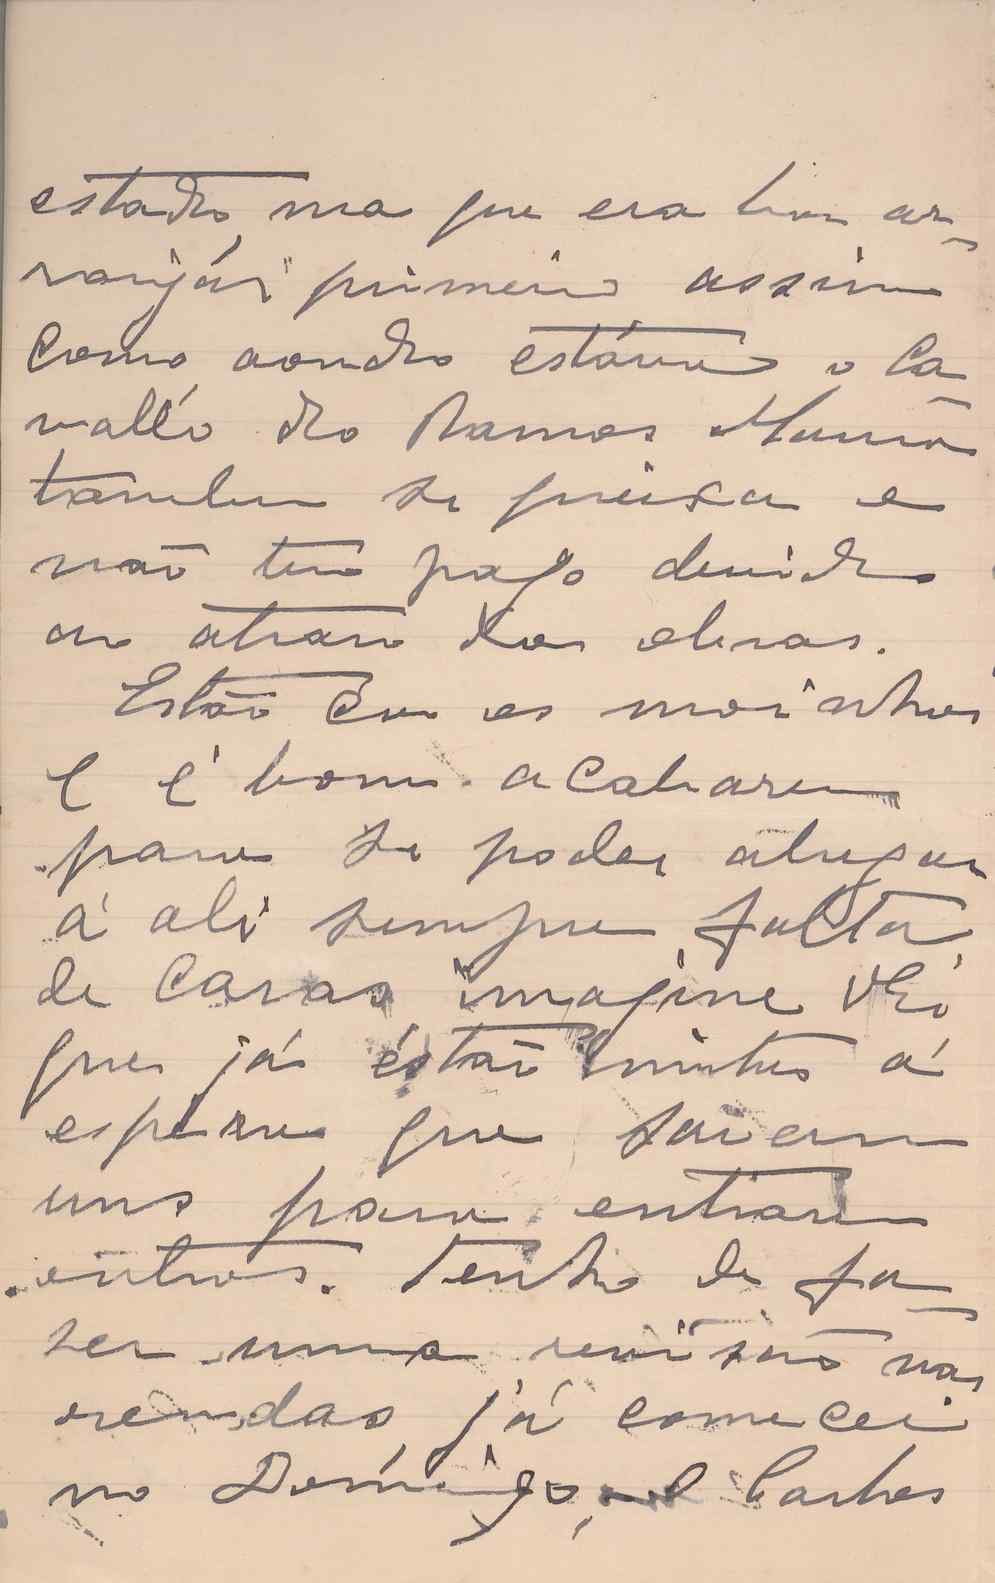 estado, ma que era bom ar-
ranjár primeiro assim
como aondo estáva o Ca-
vallo do Ramos
tambem se queixa e
não tem pago devido
ao atrazo das obras.
Estão em os moinhos
e é bom acabarem
para se poder alugar
á ali sempre falta
de casas, imagine
que já éstão muitos á
espera que saiam
uns para entrarem
outros. Tenho de fa-
zer uma revisão nas
rendas, já comecei
no Domingo, o Carlos